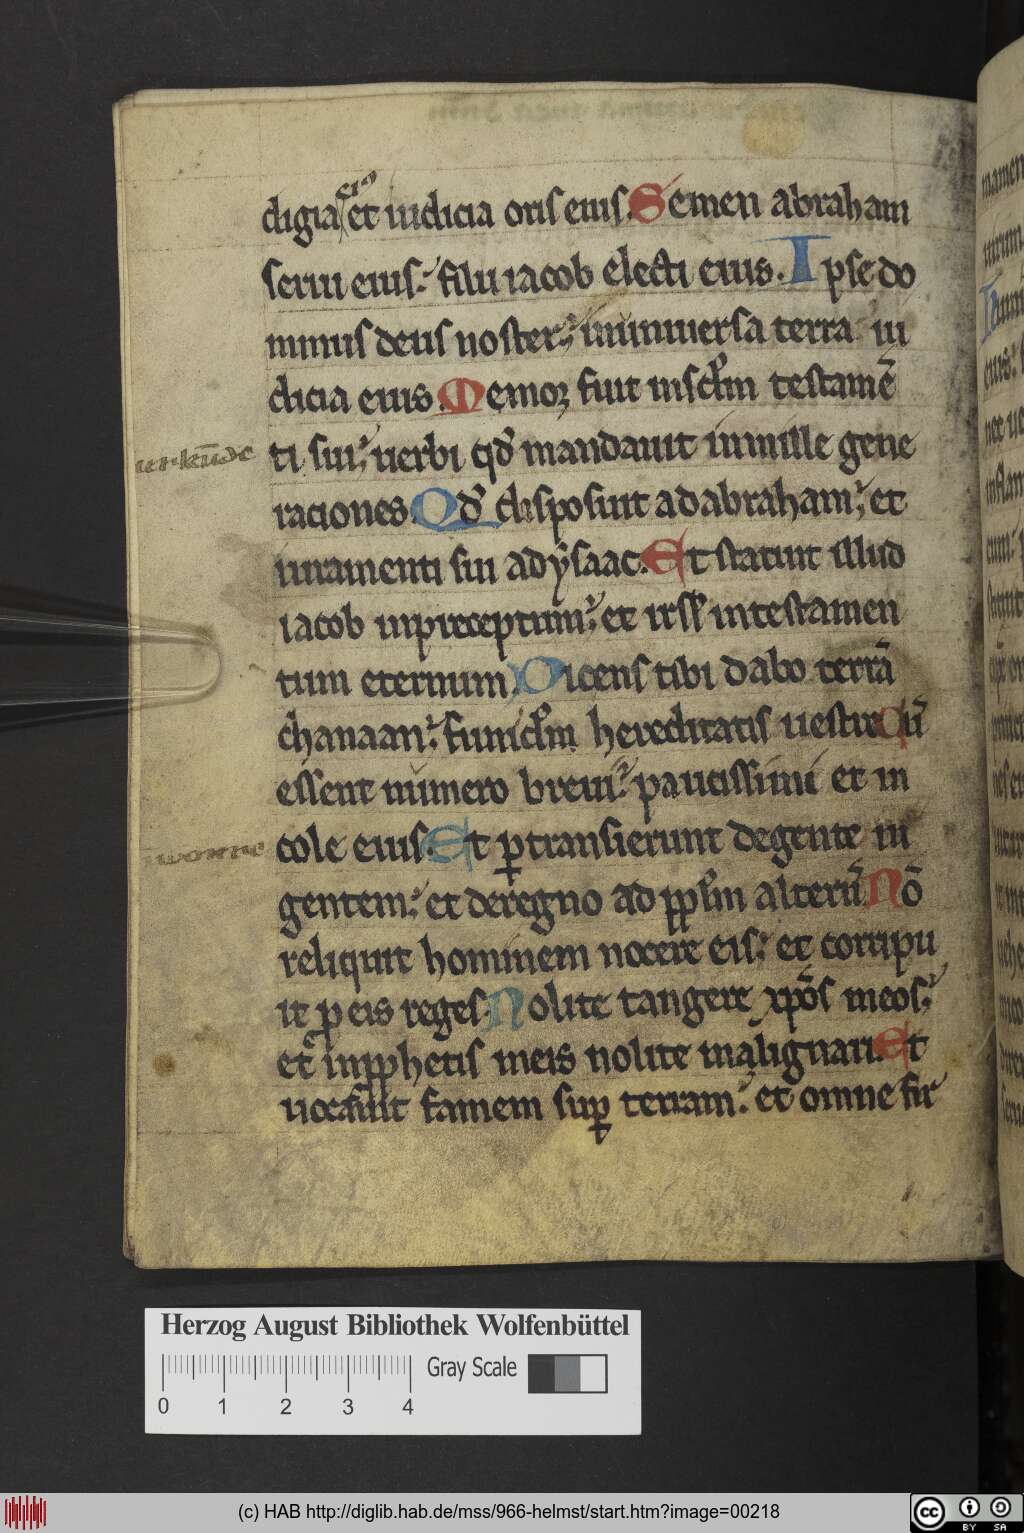 digia eiꝰ et iudicia oris eius. Semen abraham
serui eius: filii iacob electi eius. Ipse do
minus deus noster: in uniuersa terra iu
dicia eius. Memor fuit in sc̄lm testamē
urkūde
ti sui: uerbi qd̓ mandauit in mille gene
raciones. Qd̓ disposuit ad abraham: et
iuramenti sui ad ẏsaac. Et statuit illud
iacob in preceptum: et isrl̓ in testamen
tum eternum. Dicens tibi dabo terrā
chanaan: funicl̓m hereditatis uestre Cū
essent numero breui: paucissimi et in
wonne
cole eius: Et ꝑtransierunt de gente in
gentem: et de regno ad ppl̓m alterū. Nō
reliquit hominem nocere eis: et corripu
it p eis reges. Nolite tangere xpōs meos:
et in pphetis meis nolite malignari. Et
uocauit famem suꝑ terram: et omne fir
Herzog August Bibliothek Wolfenbüttel
Gray Scale
0 1 2 3 4
(c) HAB http://diglib.hab.de/mss/966-helmst/start.htm?image=00218
cc BY SA